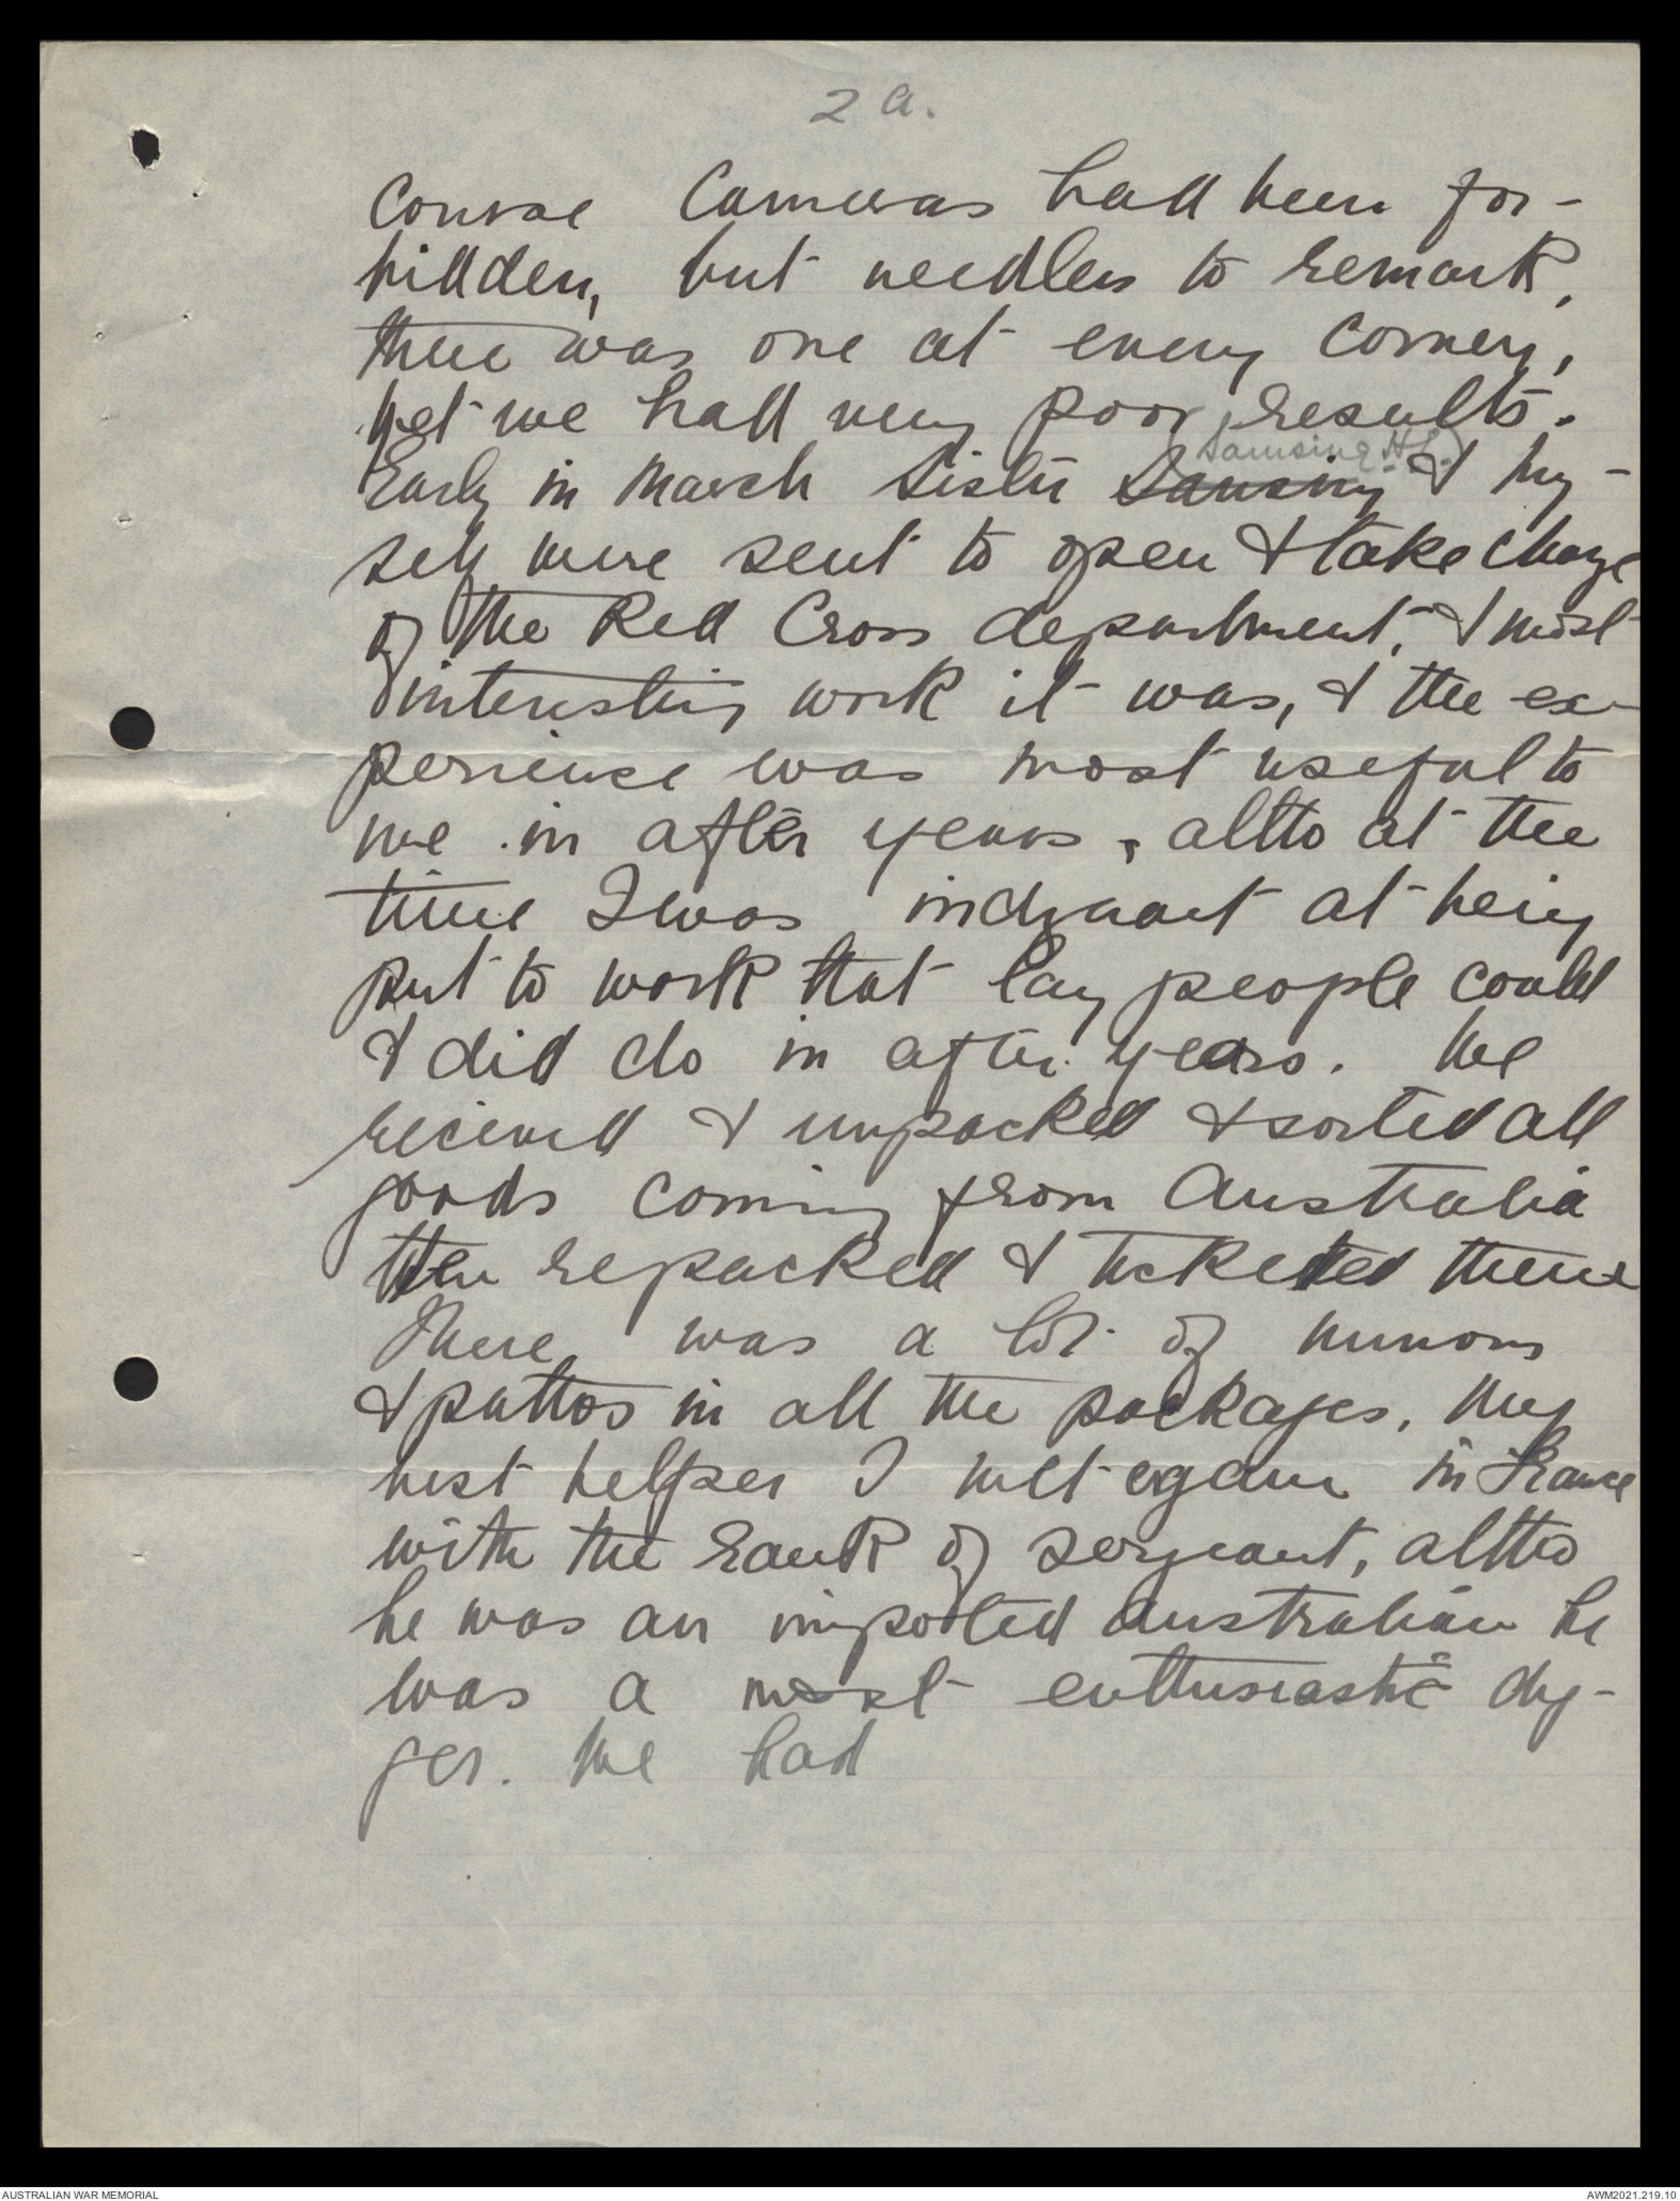 2a.
Course Cameras had been for-
bidden, but needless to remark,
there was one at every corner,
yet we had very poor results.
Samsing H.L.
Early in March Sister Sansing & my-
self were sent to open & take charge
of the Red Cross department, & most
interesting work it was, & the ex-
perience was most useful to
me in after years, altho at the
time I was indignant at being
put to work that lay people could
& did do in after years. We
received & unpacked & sorted all
goods coming from Australia
then repacked & ticketed them
There was a lot of humour
& pathos in all the packages. My
best helper I met again in France
with the rank of sergeant, altho
he was an imported Australian he
was a most enthusiastic dig-
ger. We had
AUSTRALIAN WAR MEMORIAL
AWM2021.219.10